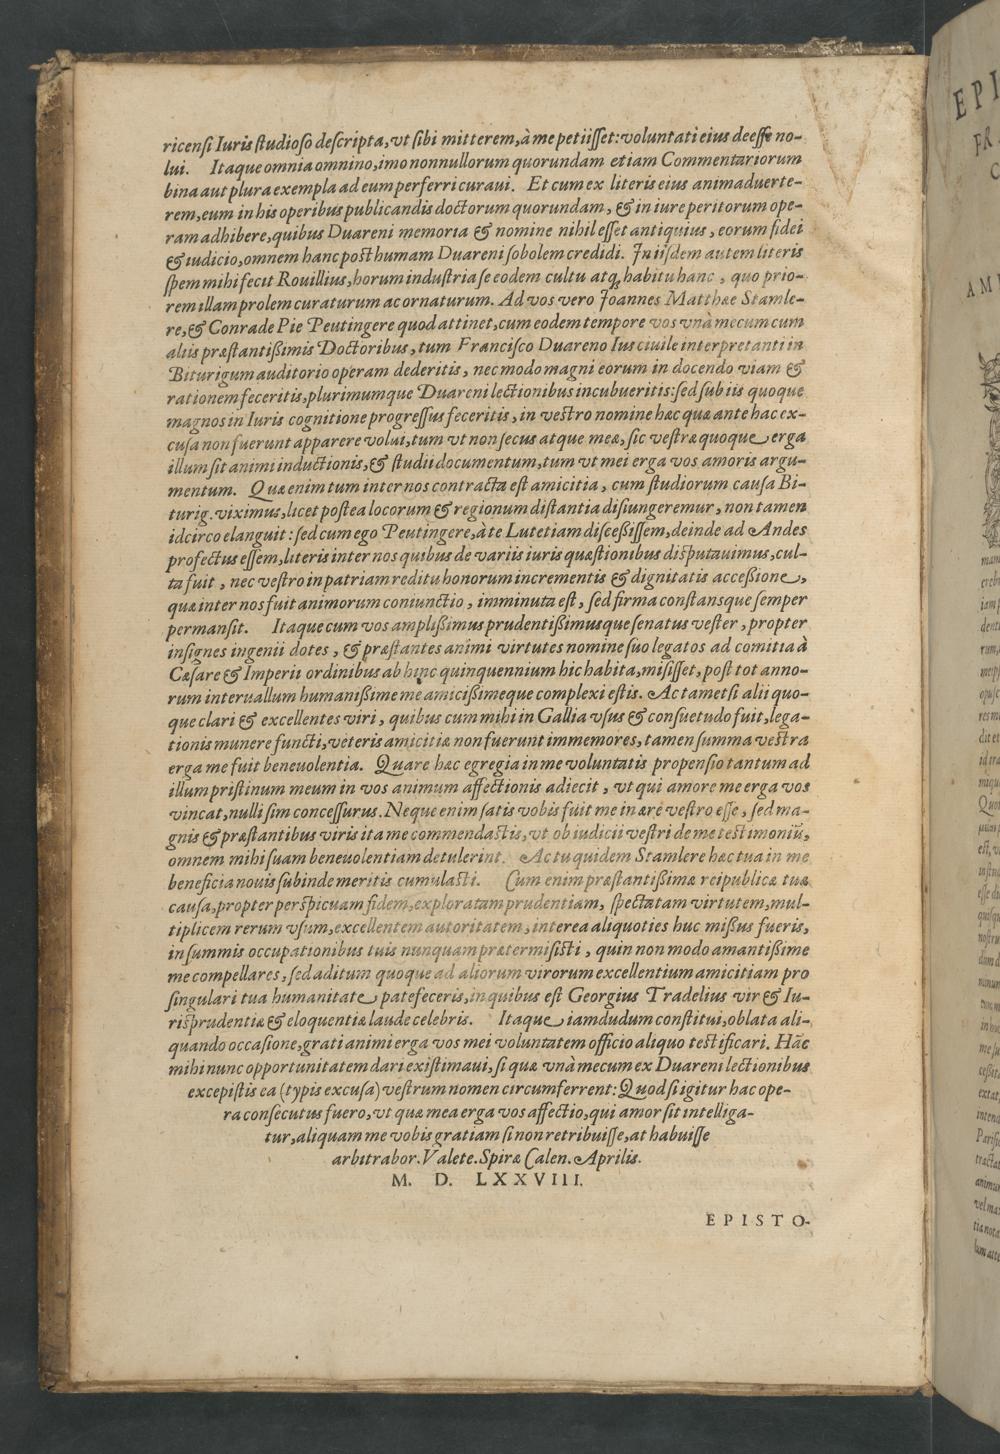 ricenſi Iuris ſtudioſo deſcripta, vt ſibi mitterem, à me petiiſſet: voluntati eius deeſſe no-
lui. Itaque omnia omnino, imo nonnullorum quorundam etiam Commentariorum
bina aut plura exempla ad eum perferri curaui. Et cum ex literis eius animaduerte-
rem, eum in his operibus publicandis doctorum quorundam, & in iure peritorum ope-
ram adhibere, quibus Duareni memoria & nomine nihil eſſet antiquius, eorum fidei
& iudicio, omnem hanc poſthumam Duareni ſobolem credidi. In iiſdem autem literis
ſpem mihi fecit Rouillius, horum induſtria ſe eodem cultu atq; habitu hanc, quo prio-
rem illam prolem curaturum ac ornaturum. Ad vos vero Joannes Matthæe Stamle-
re, & Conrade Pie Peutingere quod attinet, cum eodem tempore vos vnà mecum cum
aliis præſtantißimis Doctoribus, tum Franciſco Duareno Ius ciuile interpretanti in
Biturigum auditorio operam dederitis, nec modo magni eorum in docendo viam &
rationem feceritis, plurimumque Duareni lectionibus incubueritis: ſed ſub iis quoque
magnos in Iuris cognitione progreſſus feceritis, in veſtro nomine hæc quæ ante hac ex-
cuſa non fuerunt apparere volui, tum vt non ſecus atque meæ, ſic veſtræ quoque erga
illum ſit animi inductionis, & ſtudii documentum, tum vt mei erga vos amoris argu-
mentum. Quæ enim tum inter nos contracta eſt amicitia, cum ſtudiorum cauſa Bi-
turig. viximus, licet poſtea locorum & regionum diſtantia diſiungeremur, non tamen
idcirco elanguit: ſed cum ego Peutingere, à te Lutetiam diſceßiſſem, deinde ad Andes
profectus eſſem, literis inter nos quibus de variis iuris quæſtionibus diſputauimus, cul-
ta fuit, nec veſtro in patriam reditu honorum incrementis & dignitatis acceßione,
quæ inter nos fuit animorum coniunctio, imminuta eſt, ſed firma conſtansque ſemper
permanſit. Itaque cum vos amplißimus prudentißimusque ſenatus veſter, propter
inſignes ingenii dotes, & præſtantes animi virtutes nomine ſuo legatos ad comitia à
Cæſare & Imperii ordinibus ab hinc quinquennium hic habita, miſiſſet, poſt tot anno-
rum interuallum humanißime me amicißimeque complexi eſtis. Ac tametſi alii quo-
que clari & excellentes viri, quibus cum mihi in Gallia vſus & conſuetudo fuit, lega-
tionis munere functi, veteris amicitiæ non fuerunt immemores, tamen ſumma veſtra
erga me fuit beneuolentia. Quare hæc egregia in me voluntatis propenſio tantum ad
illum priſtinum meum in vos animum affectionis adiecit, vt qui amore me erga vos
vincat, nulli ſim conceſſurus. Neque enim ſatis vobis fuit me in ære veſtro eſſe, ſed ma-
gnis & præſtantibus viris ita me commendaſtis, vt ob iudicii veſtri de me teſtimoniũ,
omnem mihi ſuam beneuolentiam detulerint. Ac tu quidem Stamlere hæc tua in me
beneficia nouis ſubinde meritis cumulaſti. Cum enim præſtantißimæ reipublicæ tuæ
cauſa, propter perſpicuam fidem, exploratam prudentiam, ſpectatam virtutem, mul-
tiplicem rerum vſum, excellentem autoritatem, interea aliquoties huc mißus fueris,
in ſummis occupationibus tuis nunquam prætermiſiſti, quin non modo amantißime
me compellares, ſed aditum quoque ad aliorum virorum excellentium amicitiam pro
ſingulari tua humanitate patefeceris, in quibus eſt Georgius Tradelius vir & Iu-
riſprudentiæ & eloquentiæ laude celebris. Itaque iamdudum conſtitui, oblata ali-
quando occaſione, grati animi erga vos mei voluntatem officio aliquo teſtificari. Hãc
mihi nunc opportunitatem dari exiſtimaui, ſi quæ vnà mecum ex Duareni lectionibus
excepiſtis ea (typis excuſa) veſtrum nomen circumferrent: Quod ſi igitur hac ope-
ra conſecutus fuero, vt quæ mea erga vos affectio, qui amor ſit intelliga-
tur, aliquam me vobis gratiam ſi non retribuiſſe, at habuiſſe
arbitrabor. Valete. Spiræ Calen. Aprilis.
M. D. LXXVIII.
EPISTO-